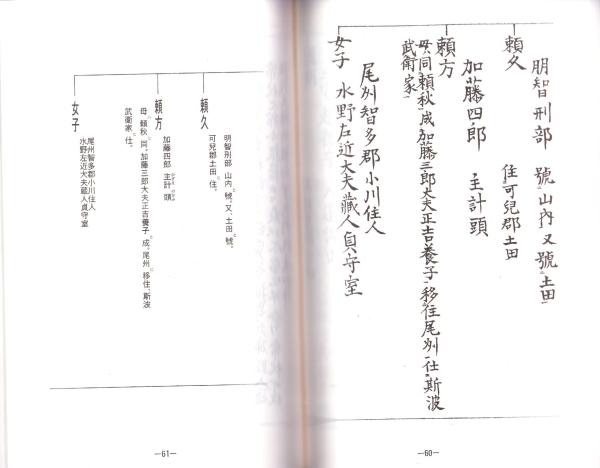 頼久
明智刑部 號山内又號土田
住可兒郡土田
頼方
加藤四郎 主計頭
母同頼秋成加藤三郎大夫正吉養子移住尾州仕斯波
武衛家
女子
尾州智多郡小川住人
水野左近大夫藏人貞守室
—60—
頼久
明智刑部 山内ト號ス、又、土田ト號。
可兒郡土田ニ住。
頼方
加藤四郎 主計頭
母ハ頼秋ニ同。加藤三郎大夫正吉養子ト成。尾州ニ移住、斯波
武衛家ニ仕。
女子
尾州智多郡小川住人
水野左近大夫蔵人貞守ノ室
—61—